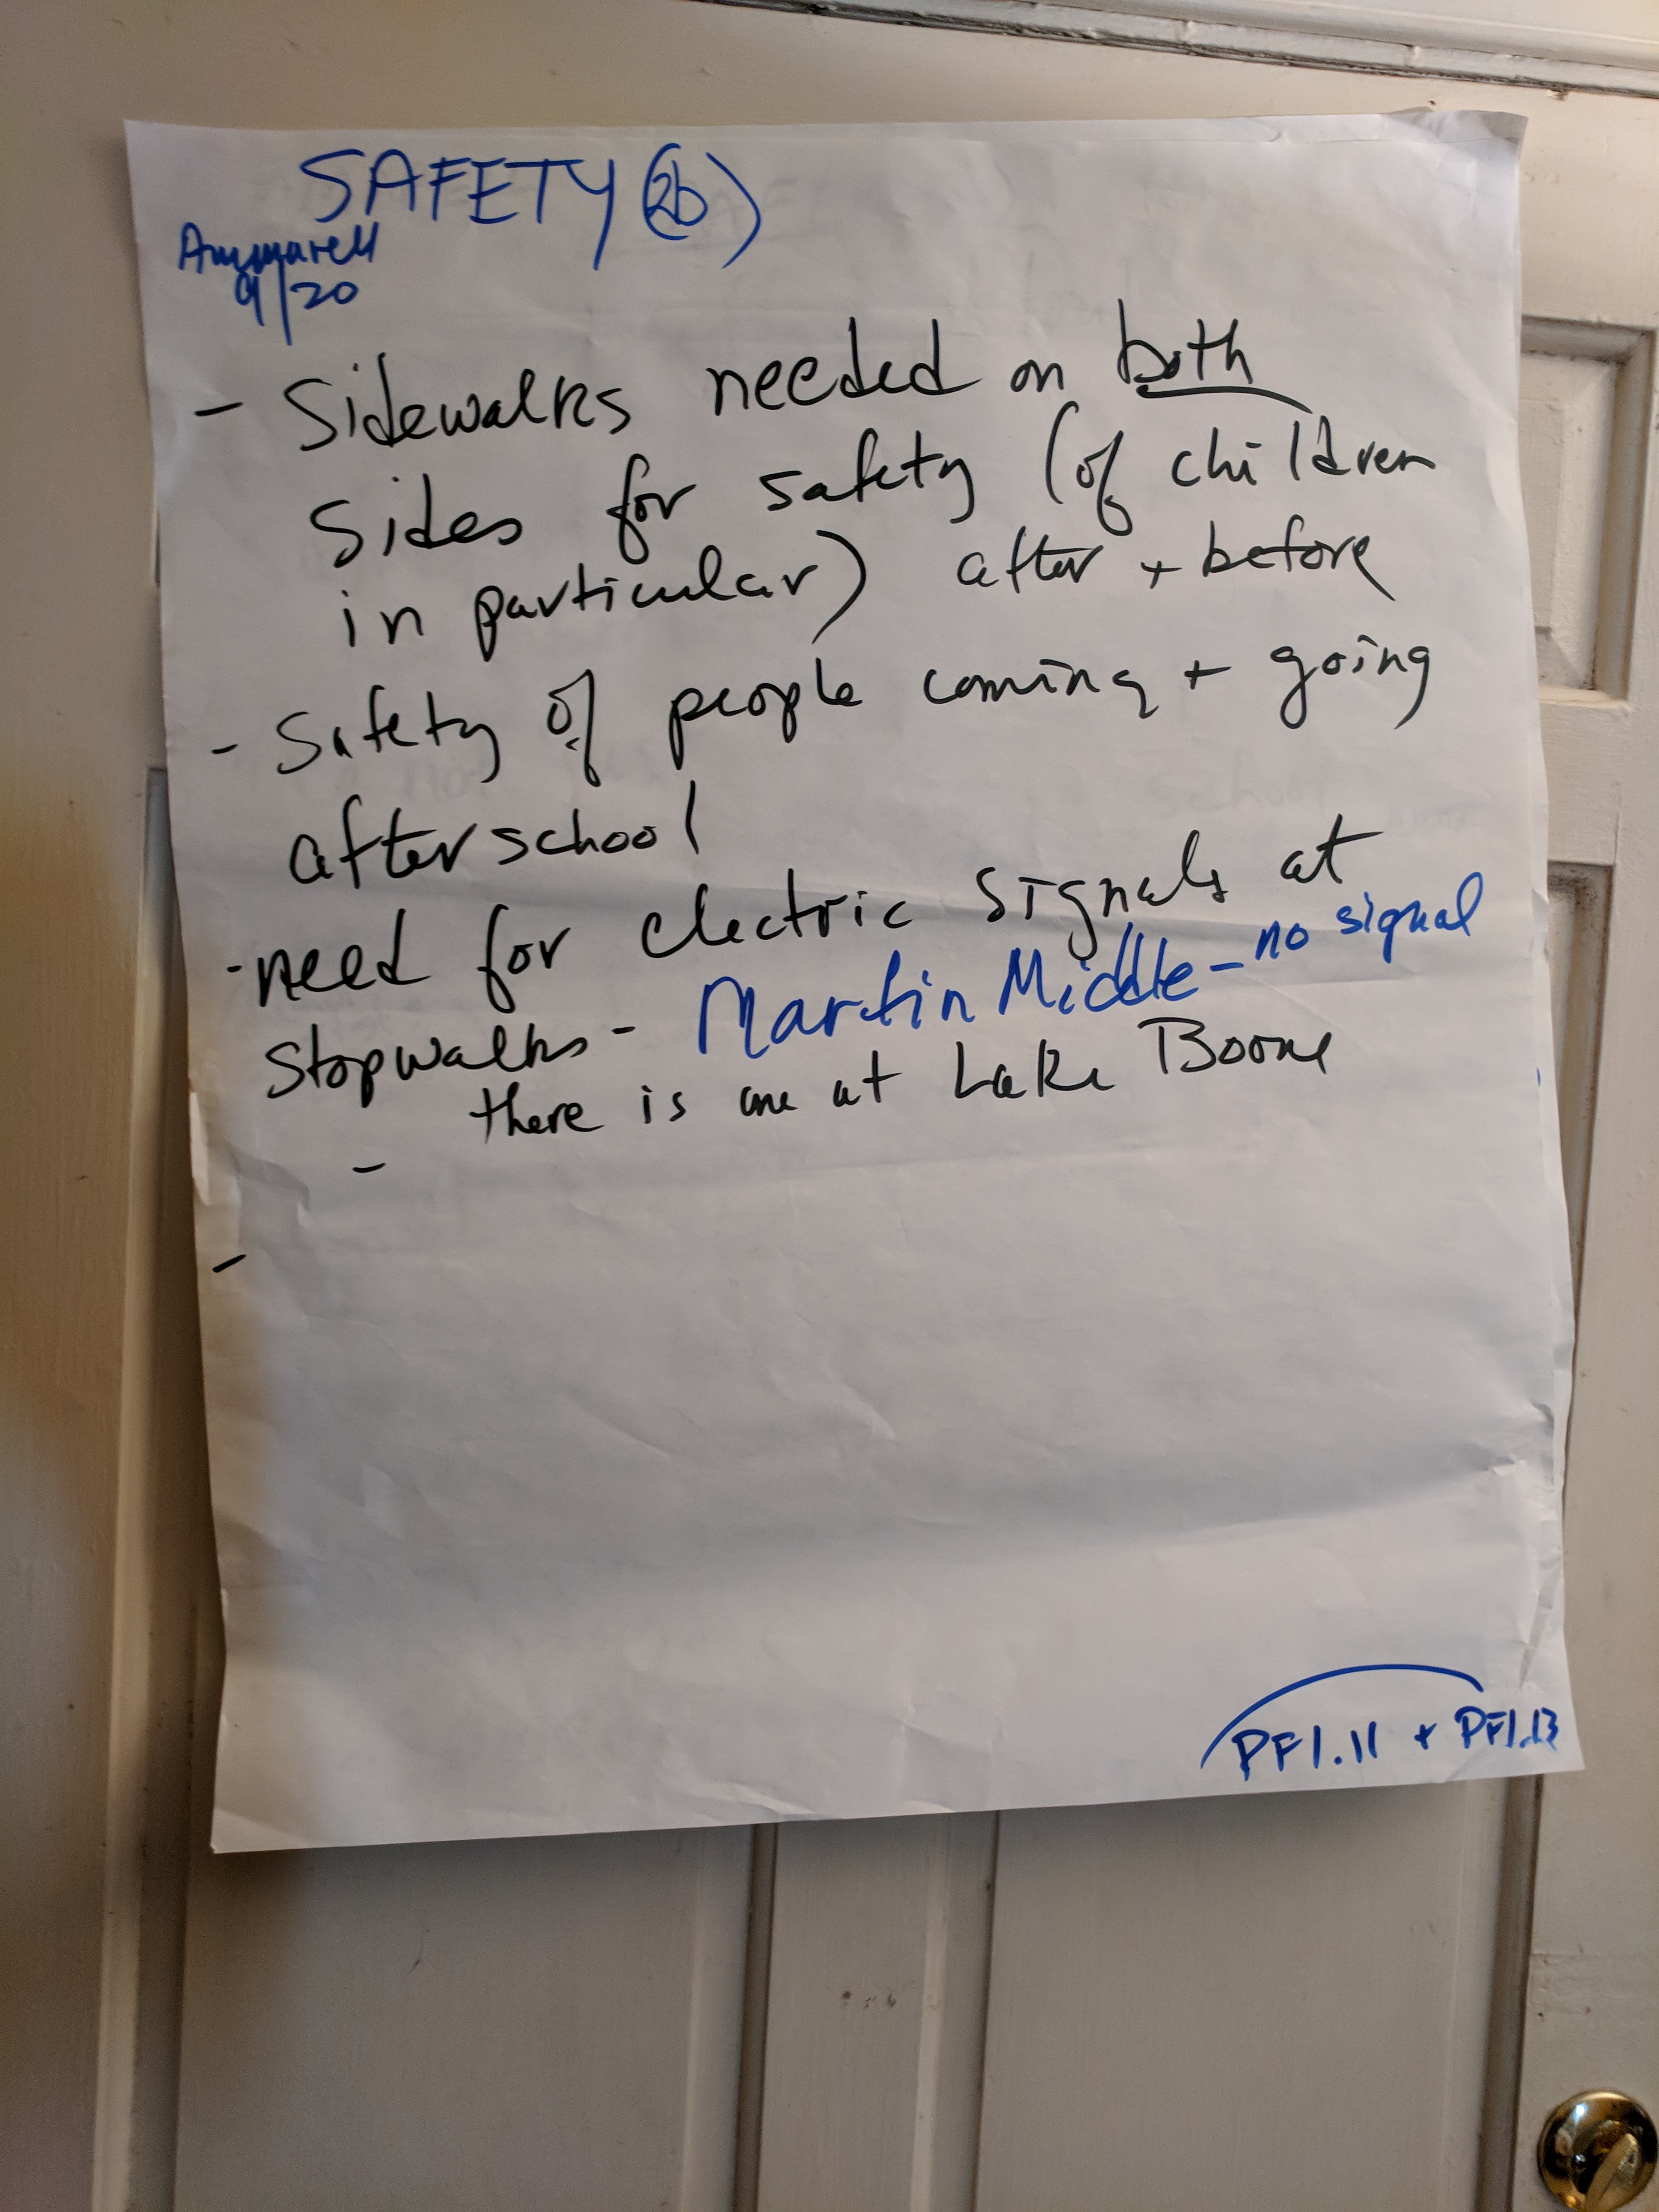 SAFETY (2b)
Ammarell
9/20
- Sidewalks needed on both
sides for safety (of children
in particular) after + before
- Safety of people coming + going
after school
- need for electric signals at
stopwalks - Martin Middle - no signal
there is one at Lake Boone
-
-
PF1.11 + PF1.13